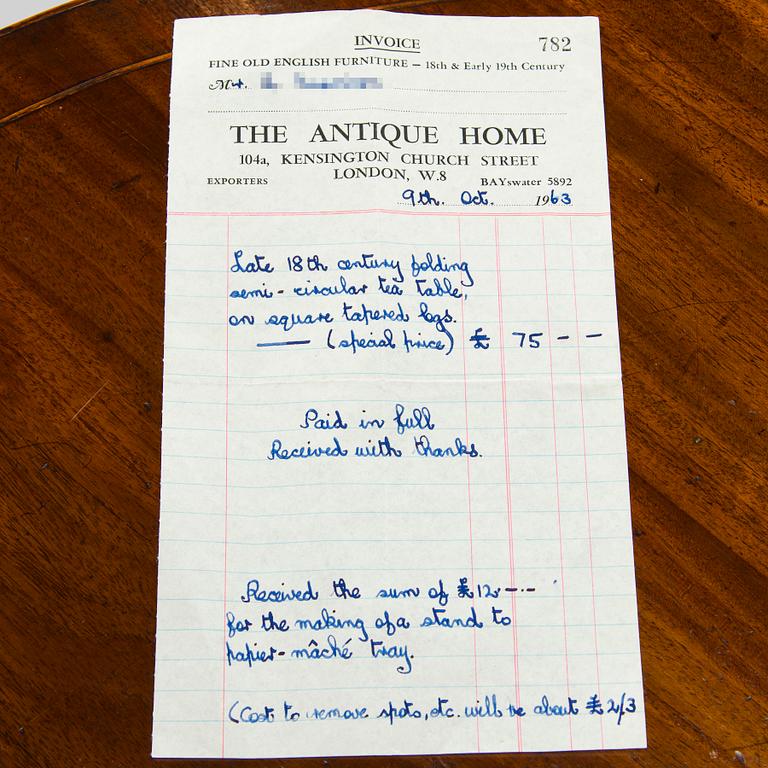 INVOICE 782
FINE OLD ENGLISH FURNITURE — 18th & Early 19th Century
Mr.
THE ANTIQUE HOME
104a, KENSINGTON CHURCH STREET
LONDON, W.8
EXPORTERS BAYswater 5892
9th. Oct. 1963
Late 18th century folding
semi-circular tea table,
on square tapered legs.
— (special price) £ 75 - -
Paid in full
Received with thanks.
Received the sum of £12 -.-
for the making of a stand to
papier-mâché tray.
(Cost to remove spots, etc. will be about £2/3